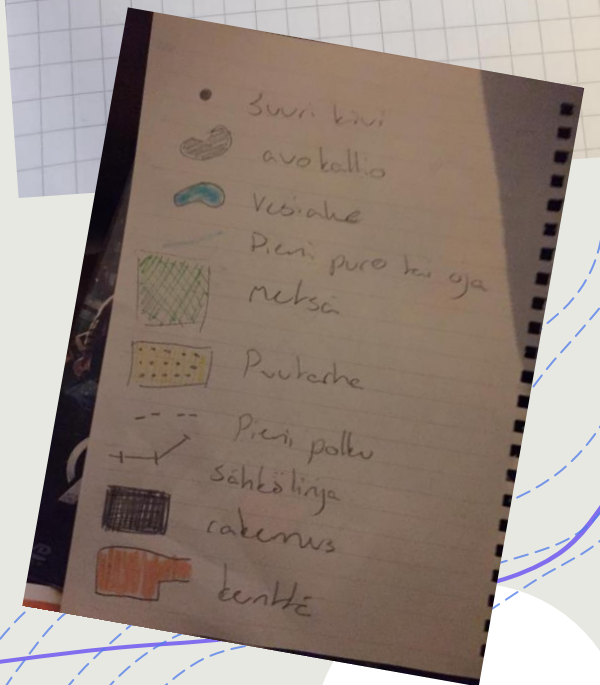 Suuri kivi
avokallio
Vesialue
Pieni puro tai oja
metsä
Puutarha
Pieni polku
Sähkölinja
rakennus
kenttä